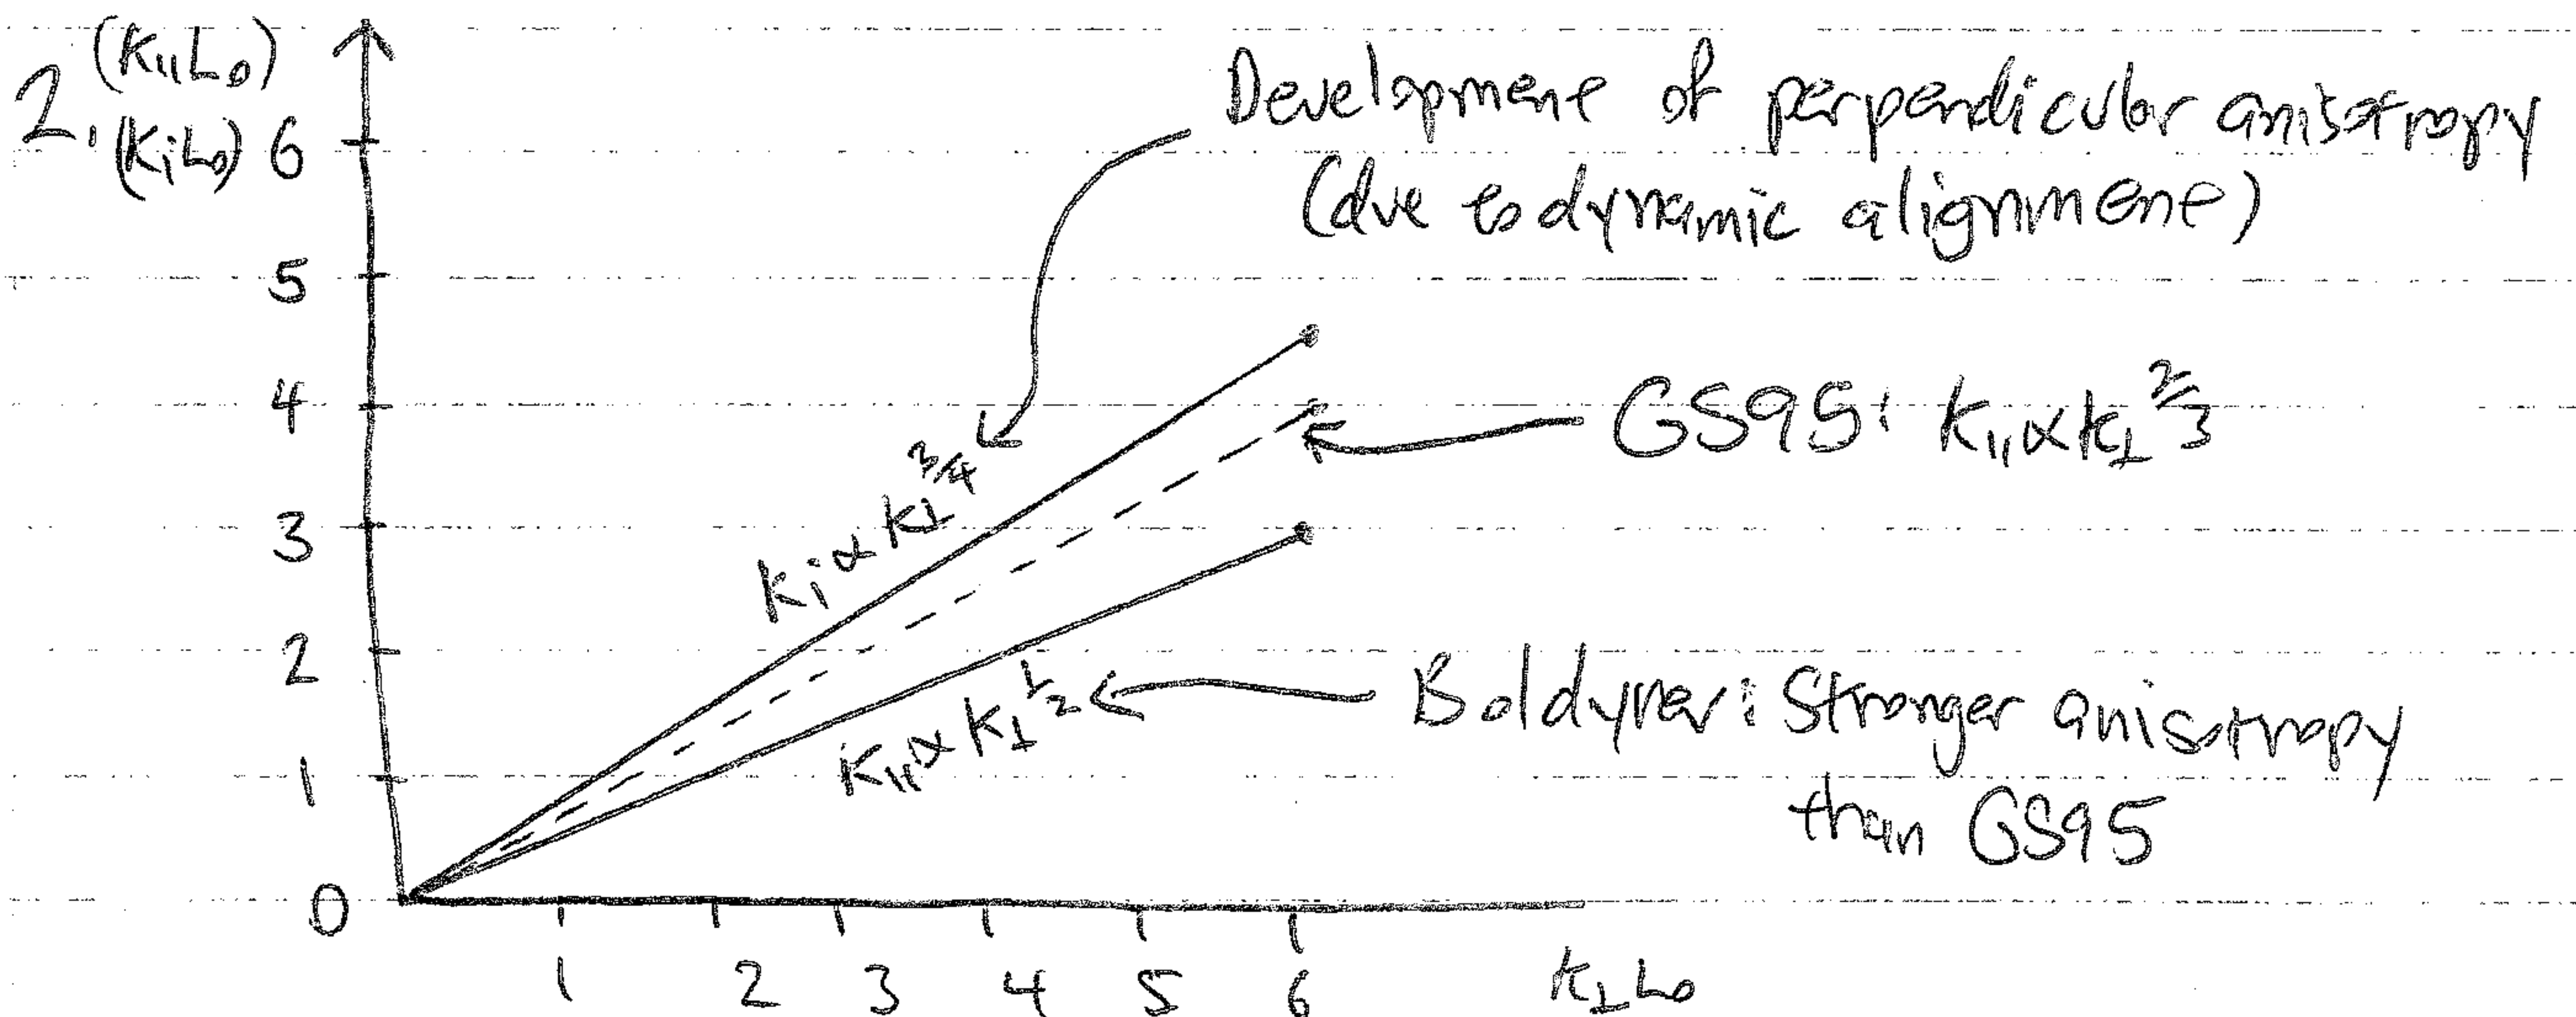 2.
(K∥L₀)
(KiL₀)
6
5
4
3
2
1
0
1 2 3 4 5 6 K⊥L₀
Development of perpendicular anisotropy
(due to dynamic alignment)
Ki ∝ K⊥^3/4
GS95: K∥ ∝ K⊥^2/3
K∥ ∝ K⊥^1/2
Boldyrev: Stronger anisotropy
than GS95